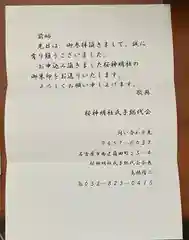 前略
先日は、御参拝頂きまして、誠に
有り難うございました。
お申込み頂きました桜神明社の
御朱印をお送りいたします。
よろしくお願い申し上げます。
敬具
桜神明社氏子総代会
問い合わせ先
〒457-0033
桜神明社氏子総代会会長